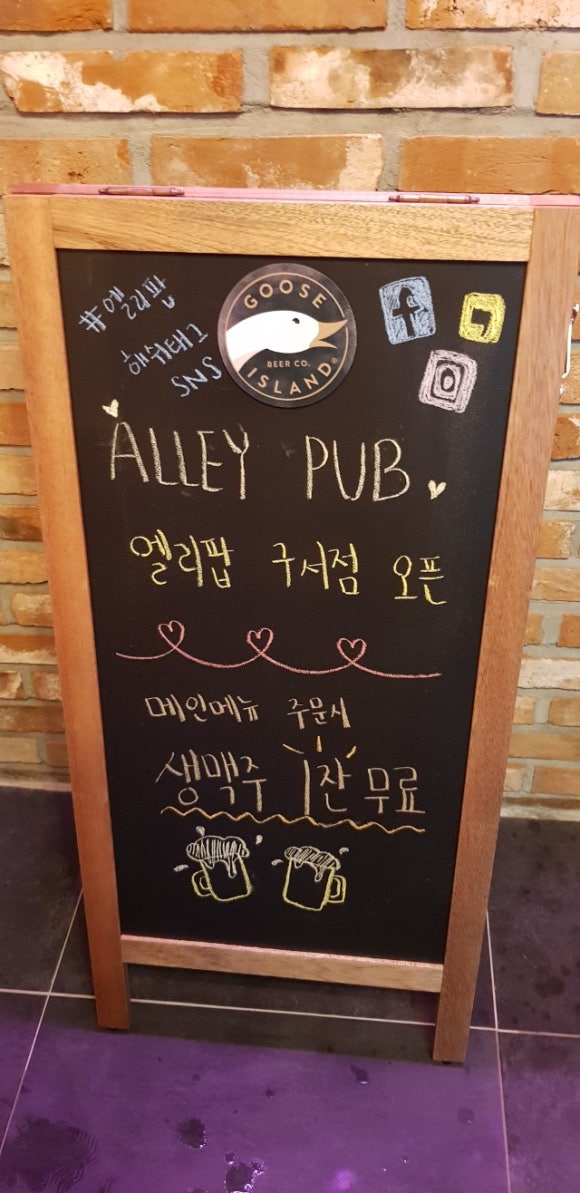 #엘리팝
해쉬태그
SNS
GOOSE
BEER CO.
ISLAND®
f
ALLEY PUB
엘리팝 구서점 오픈
메인메뉴 주문시
생맥주 1잔 무료